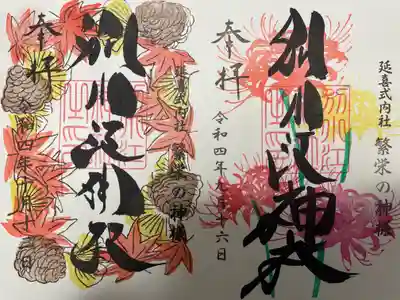 延喜式内社
繁栄の神様
別小江神社
奉拝
令和四年九月十六日
延喜式内社
繁栄の神様
別小江神社
奉拝
令和四年
日